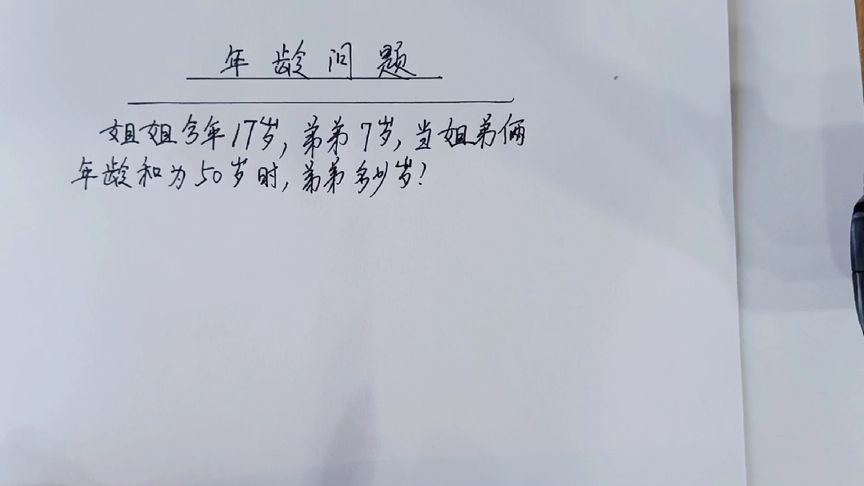 年龄问题
姐姐今年17岁,弟弟7岁,当姐弟俩
年龄和为50岁时,弟弟多少岁?